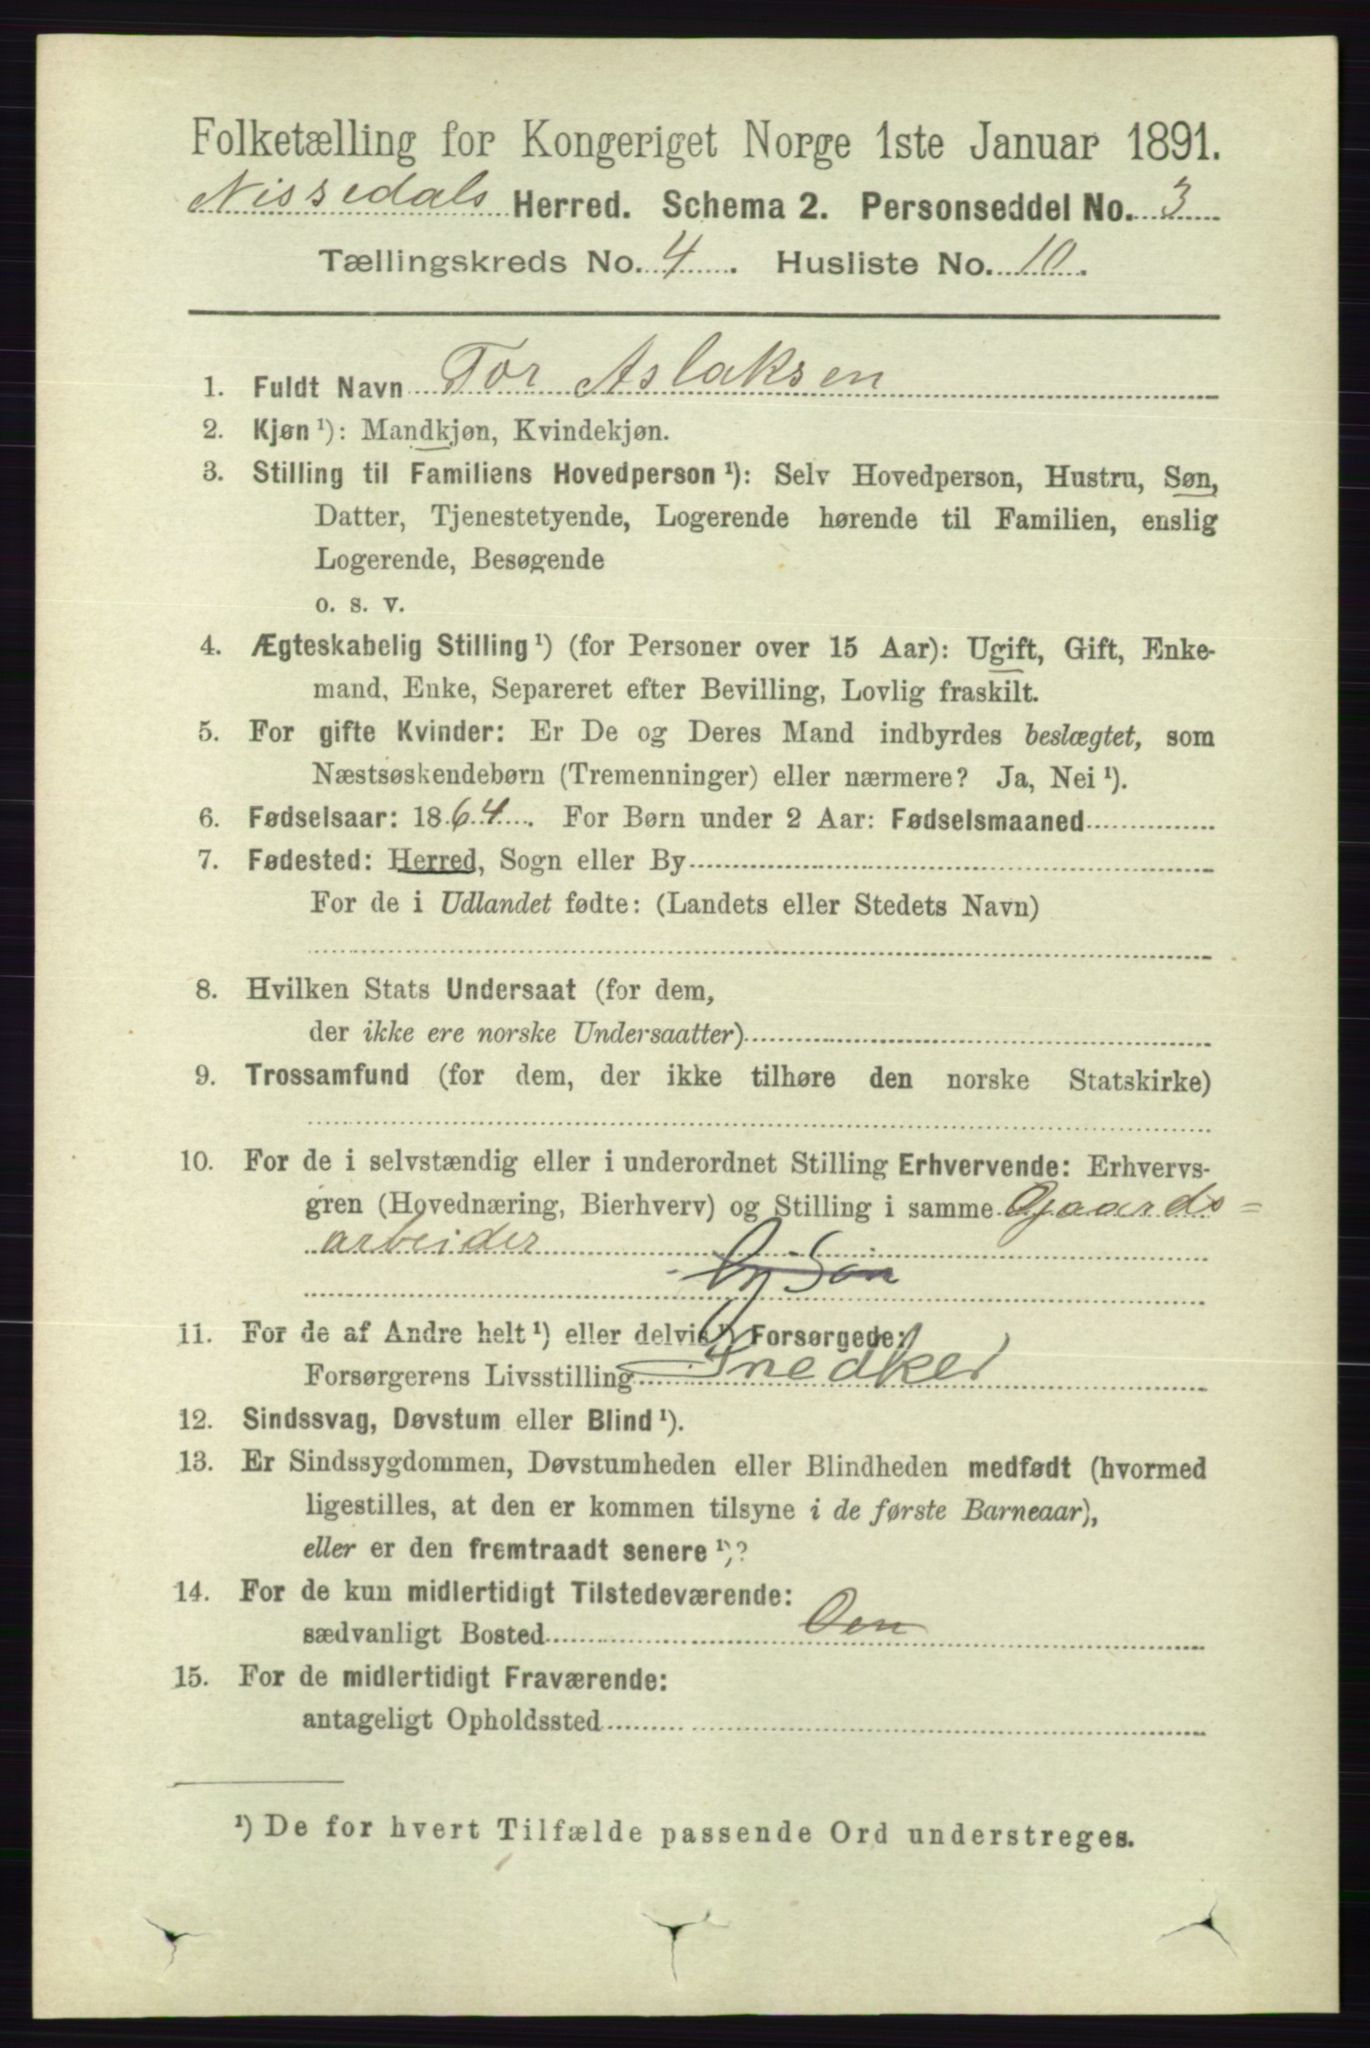 Folketælling for Kongeriget Norge 1ste Januar 1891.
Nissedals Herred. Schema 2. Personseddel No. 3
Tællingskreds No. 4. Husliste No. 10.
1. Fuldt Navn Tor Aslaksen
2. Kjøn ¹): Mandkjøn, Kvindekjøn.
3. Stilling til Familiens Hovedperson ¹): Selv Hovedperson, Hustru, Søn,
Datter, Tjenestetyende, Logerende hørende til Familien, enslig
Logerende, Besøgende
o. s. v.
4. Ægteskabelig Stilling ¹) (for Personer over 15 Aar): Ugift, Gift, Enke-
mand, Enke, Separeret efter Bevilling, Lovlig fraskilt.
5. For gifte Kvinder: Er De og Deres Mand indbyrdes beslægtet, som
Næstsøskendebørn (Tremenninger) eller nærmere? Ja, Nei ¹).
6. Fødselsaar: 1864. For Børn under 2 Aar: Fødselsmaaned
7. Fødested: Herred, Sogn eller By
For de i Udlandet fødte: (Landets eller Stedets Navn)
8. Hvilken Stats Undersaat (for dem,
der ikke ere norske Undersaatter)
9. Trossamfund (for dem, der ikke tilhøre den norske Statskirke)
10. For de i selvstændig eller i underordnet Stilling Erhvervende: Erhvervs-
gren (Hovednæring, Bierhverv) og Stilling i samme Gaards=
arbeider
Søn
11. For de af Andre helt ¹) eller delvis ¹) Forsørgede:
Forsørgerens Livsstilling Snedker
12. Sindssvag, Døvstum eller Blind ¹).
13. Er Sindssygdommen, Døvstumheden eller Blindheden medfødt (hvormed
ligestilles, at den er kommen tilsyne i de første Barneaar),
eller er den fremtraadt senere ¹)?
14. For de kun midlertidigt Tilstedeværende:
sædvanligt Bosted
15. For de midlertidigt Fraværende:
antageligt Opholdssted
¹) De for hvert Tilfælde passende Ord understreges.